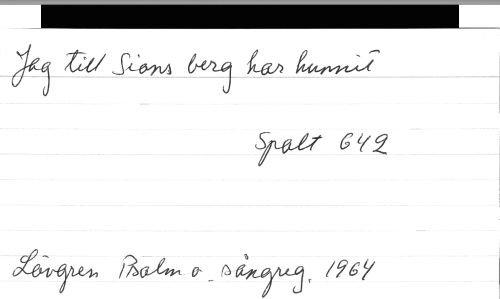 Jag till Sions berg har hunnit
Spalt 642
Lövgren Psalm o. sångreg. 1964